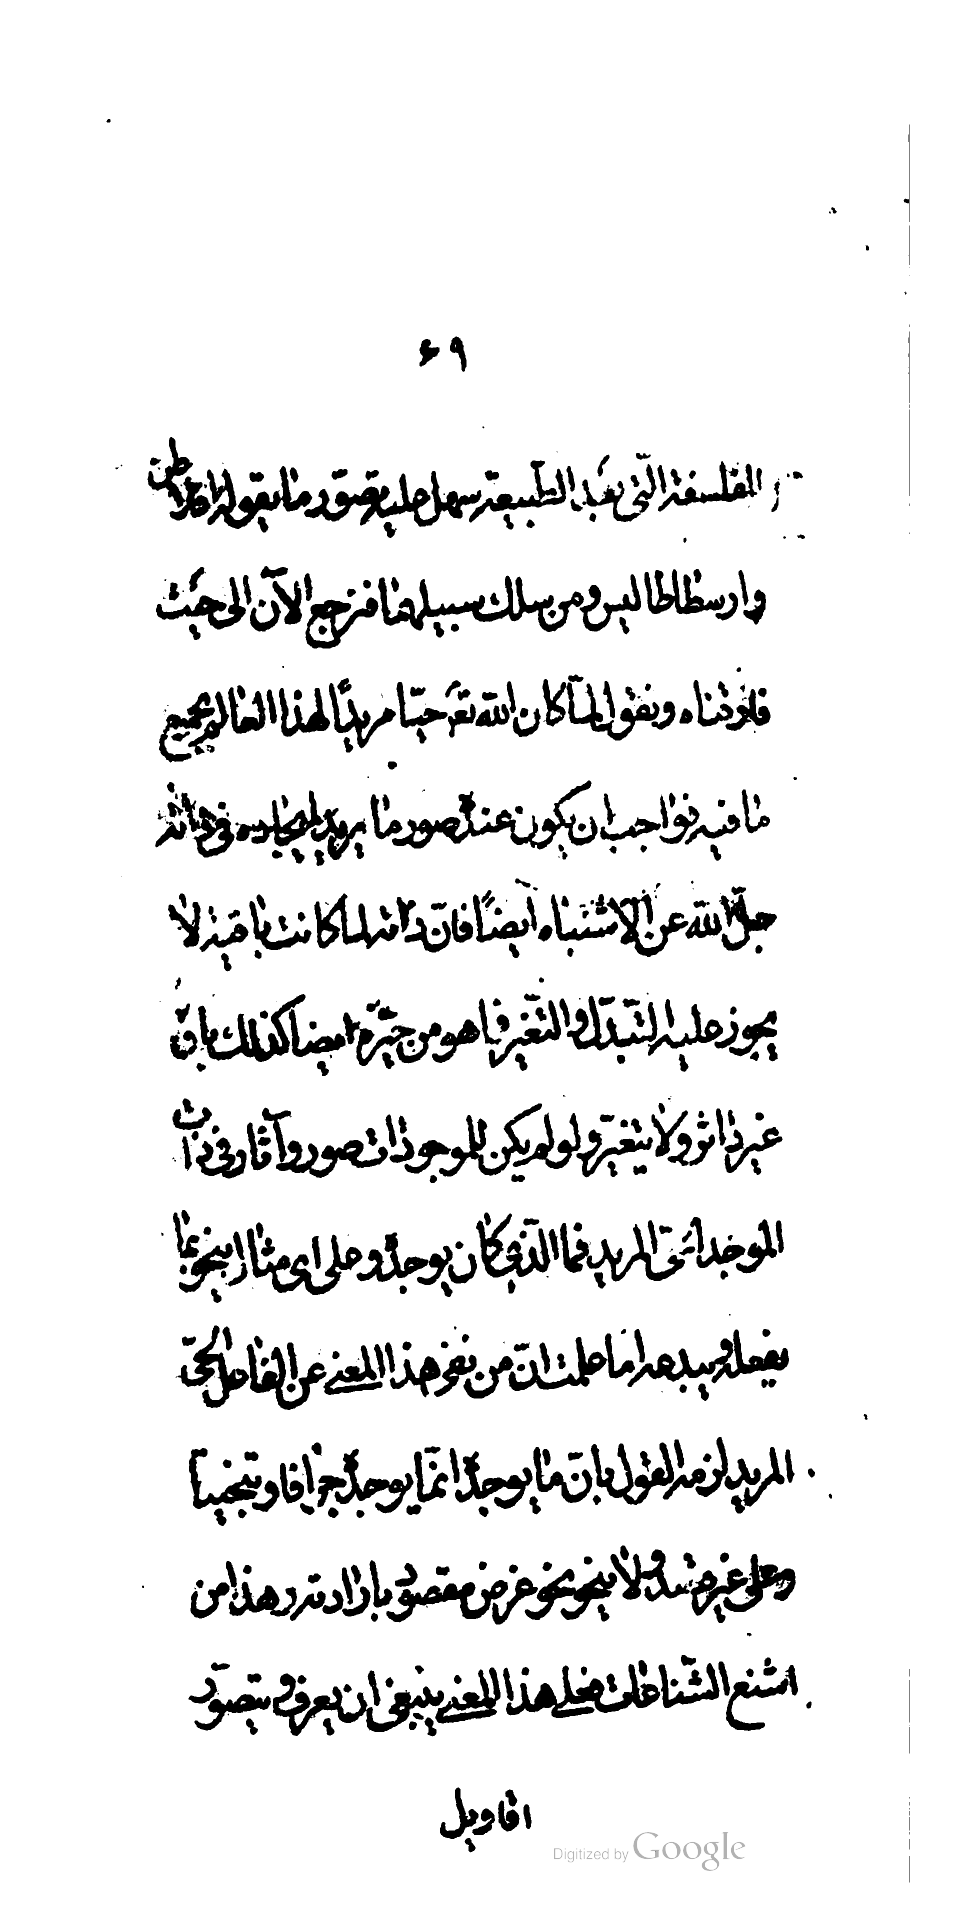 ۶۹
الفلسفة الّتى بعد الطّبيعة سهل عليه تصوّر ما يقوله افلاطن
وارسطاطاليس ومن سلك سبيلهما فنرجع الآن الى حيث
فارقناه ونقول لمّا كان اللّه تع حيّا مريدًا لهذا العالم بجميع
ما فيه فواجب ان يكون عنده صور ما يريد ايجاده فى ذاته
جلّ اللّه عن الاشتباه ايضًا فانّ ذاته لما كانت باقية لا
يجوز عليه التبدّل والتغيّر فما هو من حيّزه ايضا كذلك باق
غير داثر ولا يتغيّر ولو لم يكن للموجودات صور وآثار فى ذات
الموجد الحىّ المريد فما الذّى كان يوجده وعلى اى مثال ينحو بما
يفعله ويبدعه اما علمت انّ من نفى هذا المعنى عن الفاعل الحىّ
المريد لزمه القول بانّ ما يوجده انّما يوجده جزافا وتبخيتاً
وعلى غير قصد ولا ينحو نحو غرض مقصود بارادته وهذا من
اشنع الشّناعات فعلى هذا المعنى ينبغى ان يعرف ويتصوّر
اقاويل
Digitized by Google